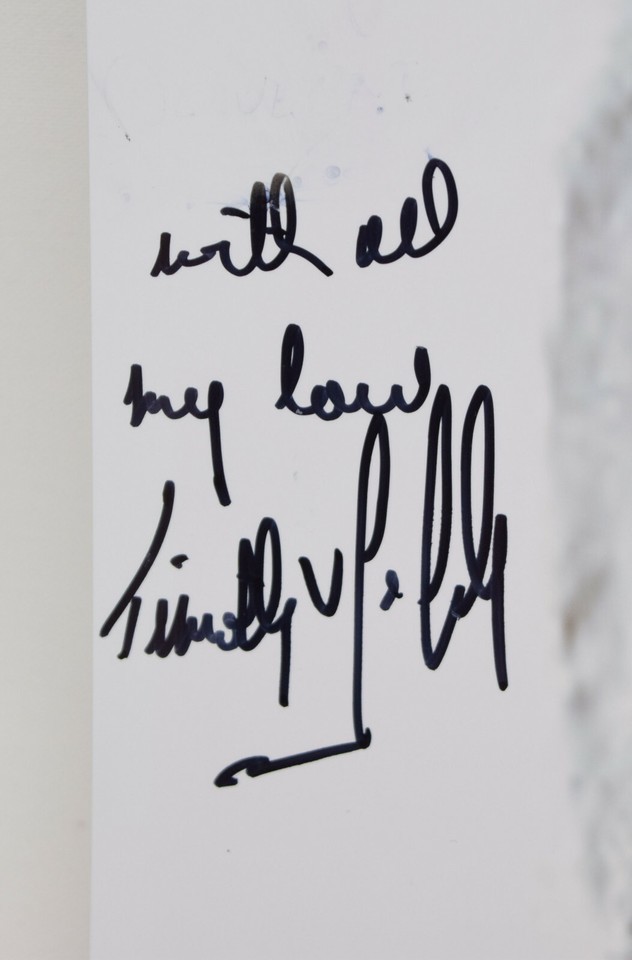 with all
my love
Timothy